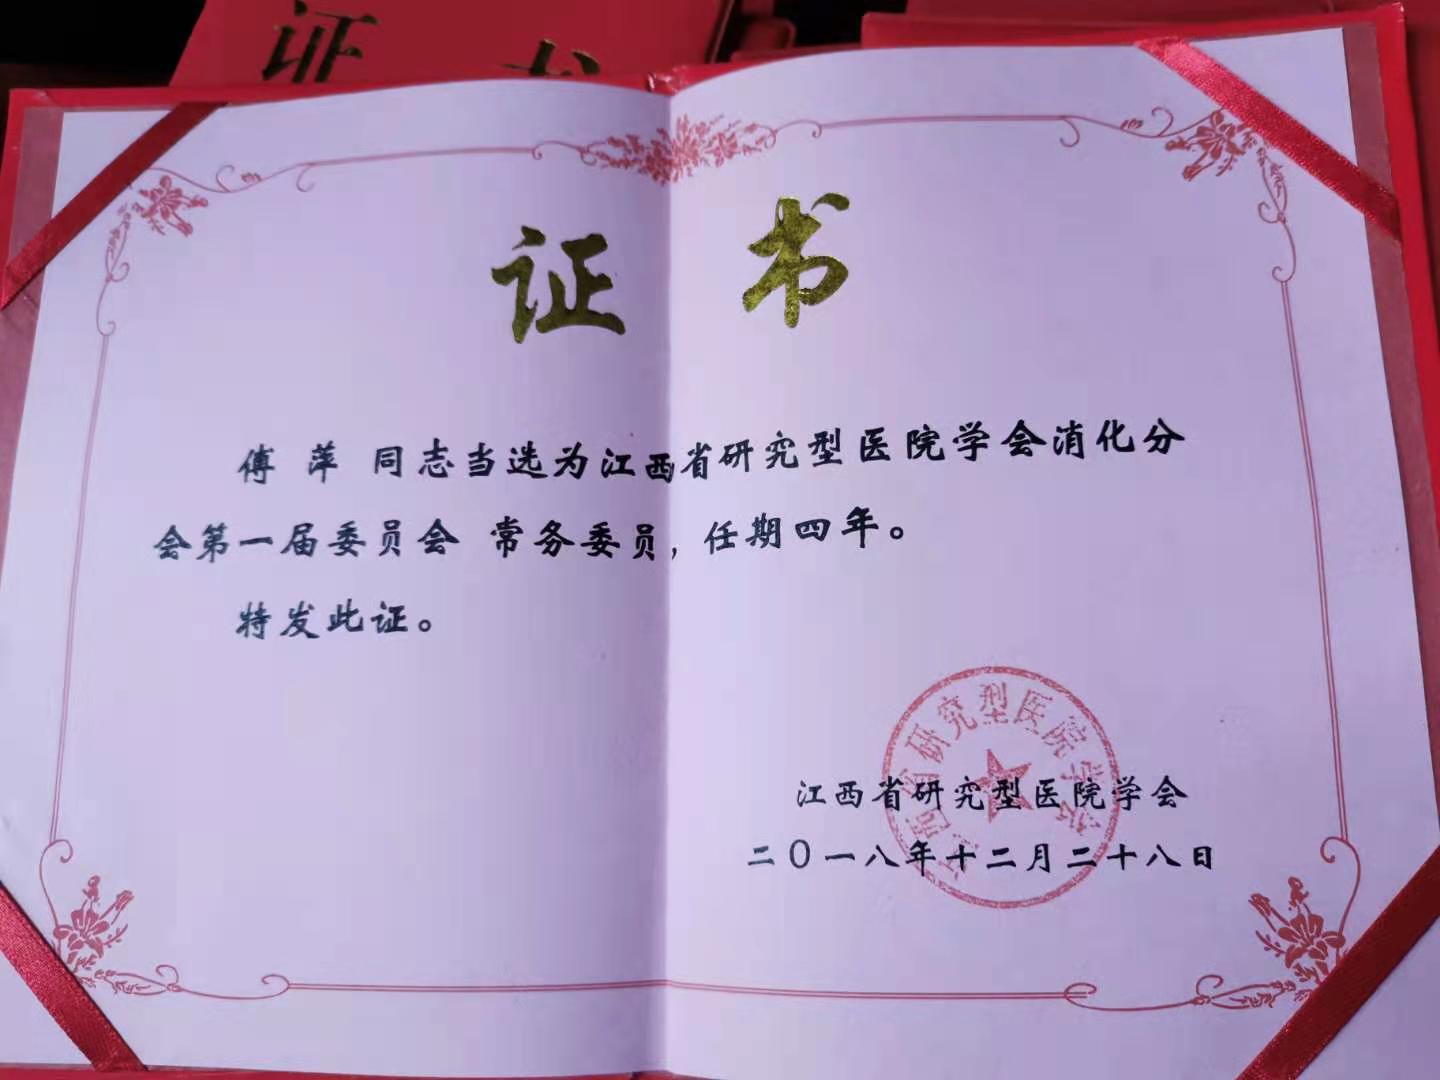 证书
证书
傅 萍 同志当选为江西省研究型医院学会消化分
会第一届委员会 常务委员，任期四年。
特发此证。
江西省研究型医院学会
江西省研究型医院学会
二〇一八年十二月二十八日